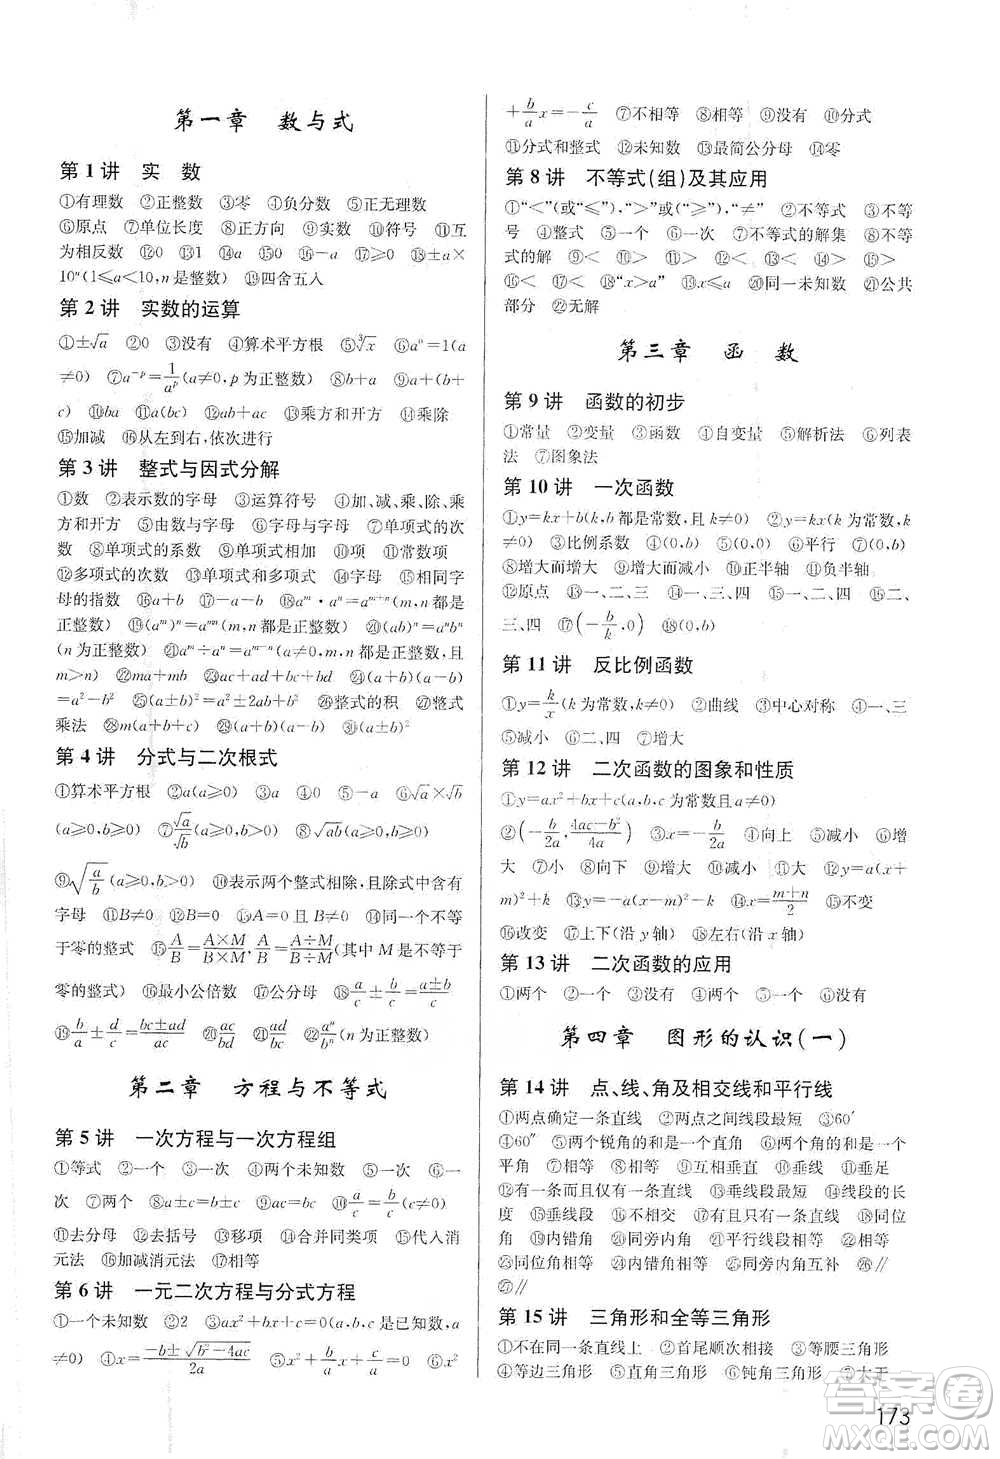 第一章 数与式
第 1 讲 实 数
①有理数 ②正整数 ③零 ④负分数 ⑤正无理数
⑥原点 ⑦单位长度 ⑧正方向 ⑨实数 ⑩符号 ⑪互
为相反数 ⑫0 ⑬1 ⑭a ⑮0 ⑯-a ⑰≥ ⑱±a×
10ⁿ(1≤a<10,n是整数) ⑲四舍五入
第 2 讲 实数的运算
①±√a ②0 ③没有 ④算术平方根 ⑤∛x ⑥a⁰=1(a
≠0) ⑦a⁻ᵖ=1/aᵖ(a≠0,p为正整数) ⑧b+a ⑨a+(b+
c) ⑩ba ⑪a(bc) ⑫ab+ac ⑬乘方和开方 ⑭乘除
⑮加减 ⑯从左到右,依次进行
第 3 讲 整式与因式分解
①数 ②表示数的字母 ③运算符号 ④加、减、乘、除、乘
方和开方 ⑤由数与字母 ⑥字母与字母 ⑦单项式的次
数 ⑧单项式的系数 ⑨单项式相加 ⑩项 ⑪常数项
⑫多项式的次数 ⑬单项式和多项式 ⑭字母 ⑮相同字
母的指数 ⑯a+b ⑰-a-b ⑱aᵐ·aⁿ=aᵐ⁺ⁿ(m,n都是
正整数) ⑲(aᵐ)ⁿ=aᵐⁿ(m,n都是正整数) ⑳(ab)ⁿ=aⁿbⁿ
(n为正整数) ㉑aᵐ÷aⁿ=aᵐ⁻ⁿ(a≠0,m,n都是正整数,且
m>n) ㉒ma+mb ㉓ac+ad+bc+bd ㉔(a+b)(a-b)
=a²-b² ㉕(a±b)²=a²±2ab+b² ㉖整式的积 ㉗整式
乘法 ㉘m(a+b+c) ㉙(a+b)(a-b) ㉚(a±b)²
第 4 讲 分式与二次根式
①算术平方根 ②a(a≥0) ③a ④-a ⑤0 ⑥√a×√b
(a≥0,b≥0) ⑦√a/√b(a≥0,b>0) ⑧√ab(a≥0,b≥0)
⑨√(a/b)(a≥0,b>0) ⑩表示两个整式相除,且除式中含有
字母 ⑪B≠0 ⑫B=0 ⑬A=0 且 B≠0 ⑭同一个不等
于零的整式 ⑮A/B=(A×M)/(B×M),A/B=(A÷M)/(B÷M)(其中M是不等于
零的整式) ⑯最小公倍数 ⑰公分母 ⑱a/c±b/c=(a±b)/c
⑲b/a±d/c=(bc±ad)/ac ⑳ac/bd ㉑aⁿ/bⁿ(n为正整数)
第二章 方程与不等式
第 5 讲 一次方程与一次方程组
①等式 ②一个 ③一次 ④两个未知数 ⑤一个 ⑥一
次 ⑦两个 ⑧a±c=b±c ⑨ac=bc ⑩a/c=b/c(c≠0)
⑪去分母 ⑫去括号 ⑬移项 ⑭合并同类项 ⑮代入消
元法 ⑯加减消元法 ⑰相等
第 6 讲 一元二次方程与分式方程
①一个未知数 ②2 ③ax²+bx+c=0(a,b,c是已知数,a
≠0) ④x=(-b±√(b²-4ac))/2a ⑤x²+(b/a)x+c/a=0 ⑥x²
+(b/a)x=-c/a ⑦不相等 ⑧相等 ⑨没有 ⑩分式
⑪分式和整式 ⑫未知数 ⑬最简公分母 ⑭零
第 8 讲 不等式(组)及其应用
①“<”(或“≤”),“>”(或“≥”),“≠” ②不等式 ③不等
号 ④整式 ⑤一个 ⑥一次 ⑦不等式的解集 ⑧不等
式的解 ⑨< ⑩> ⑪> ⑫> ⑬> ⑭< ⑮<
⑯< ⑰< ⑱“x>a” ⑲x≤a ⑳同一未知数 ㉑公共
部分 ㉒无解
第三章 函 数
第 9 讲 函数的初步
①常量 ②变量 ③函数 ④自变量 ⑤解析法 ⑥列表
法 ⑦图象法
第 10 讲 一次函数
①y=kx+b(k,b都是常数,且k≠0) ②y=kx(k为常数,k
≠0) ③比例系数 ④(0,b) ⑤(0,0) ⑥平行 ⑦b
⑧增大而增大 ⑨增大而减小 ⑩正半轴 ⑪负半轴
⑫原点 ⑬一、二、三 ⑭一、三、四 ⑮一、二、四 ⑯二、
三、四 ⑰(-b/k,0) ⑱(0,b)
第 11 讲 反比例函数
①y=k/x(k为常数,k≠0) ②曲线 ③中心对称 ④一、三
⑤减小 ⑥二、四 ⑦增大
第 12 讲 二次函数的图象和性质
①y=ax²+bx+c(a,b,c为常数,a≠0)
②(-b/2a,(4ac-b²)/4a) ③x=-b/2a ④向上 ⑤减小 ⑥增
大 ⑦小 ⑧向下 ⑨增大 ⑩减小 ⑪大 ⑫y=a(x+
m)²+k ⑬y=-a(x+m)²-k ⑭x=(m+n)/2 ⑮不变
⑯改变 ⑰上下(沿y轴) ⑱左右(沿x轴)
第 13 讲 二次函数的应用
①两个 ②一个 ③没有 ④两个 ⑤一个 ⑥没有
第四章 图形的认识(一)
第 14 讲 点、线、角及相交线和平行线
①两点确定一条直线 ②两点之间线段最短 ③60′
④60″ ⑤两个锐角的和是一个直角 ⑥两个角的和是一个
平角 ⑦相等 ⑧相等 ⑨互相垂直 ⑩垂直 ⑪垂足
⑫有一条而且仅有一条直线 ⑬垂线段最短 ⑭垂线段的长
度 ⑮不相交 ⑯有一条而且仅有一条 ⑰平行 ⑱同位
角 ⑲内错角 ⑳同旁内角 ㉑平行线段相等 ㉒同位角
㉓同位角相等 ㉔内错角相等 ㉕同旁内角互补 ㉖∥
㉗∥
第 15 讲 三角形和全等三角形
①不在同一条直线上 ②首尾顺次相接 ③等腰三角形
④等边三角形 ⑤直角三角形 ⑥钝角三角形 ⑦大于
173
答案圈
MXQE.COM